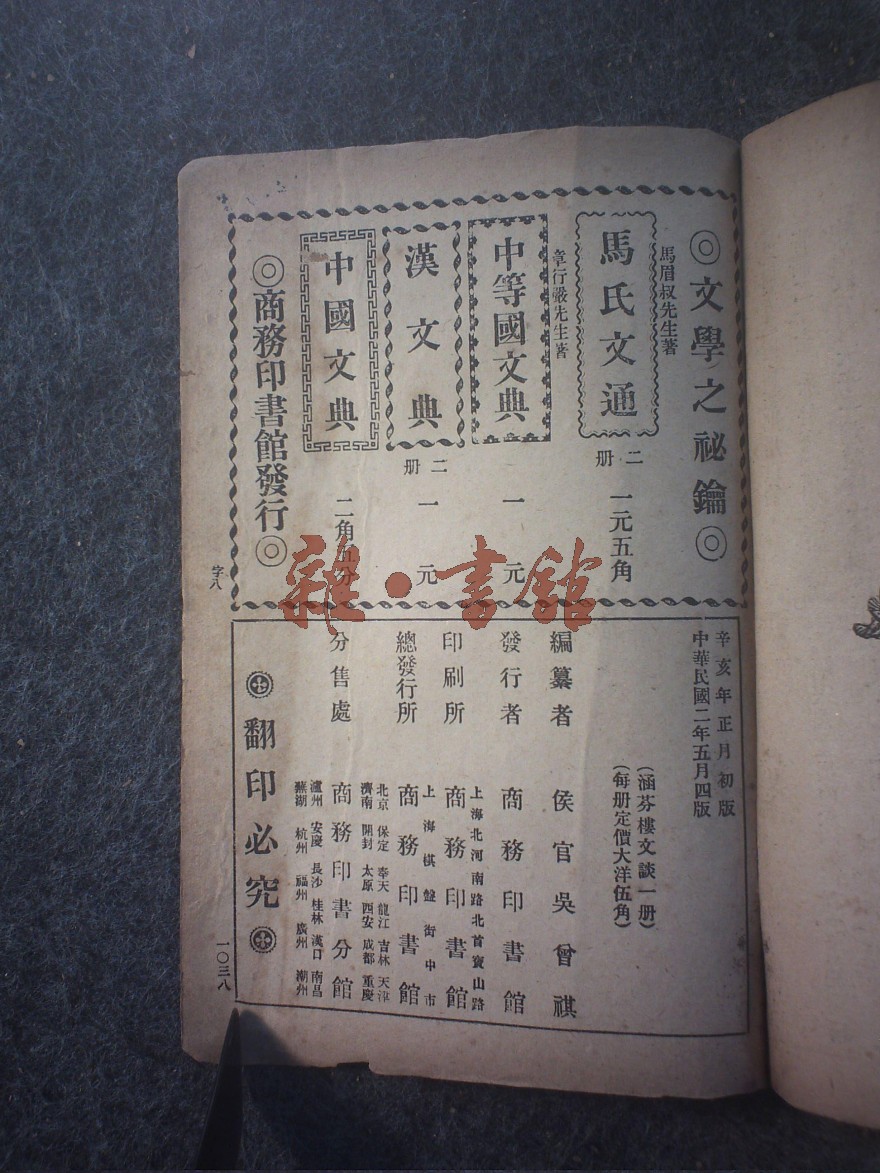 ◎文學之祕鑰◎
馬眉叔先生著
馬氏文通
二册
一元五角
章行嚴先生著
中等國文典
一元
漢文典
二册
一元
中國文典
二角五分
◎商務印書館發行◎
字八
雜·書館
辛亥年正月初版
中華民國二年五月四版
(涵芬樓文談一册)
(每册定價大洋伍角)
編纂者 侯官吳曾祺
發行者 商務印書館
上海北河南路北首寶山路
印刷所 商務印書館
上海棋盤街中市
總發行所 商務印書館
北京 保定 奉天 龍江 吉林 天津
濟南 開封 太原 西安 成都 重慶
分售處 商務印書分館
瀘州 安慶 長沙 桂林 漢口 南昌
蕪湖 杭州 福州 廣州 潮州
翻印必究
一〇三八